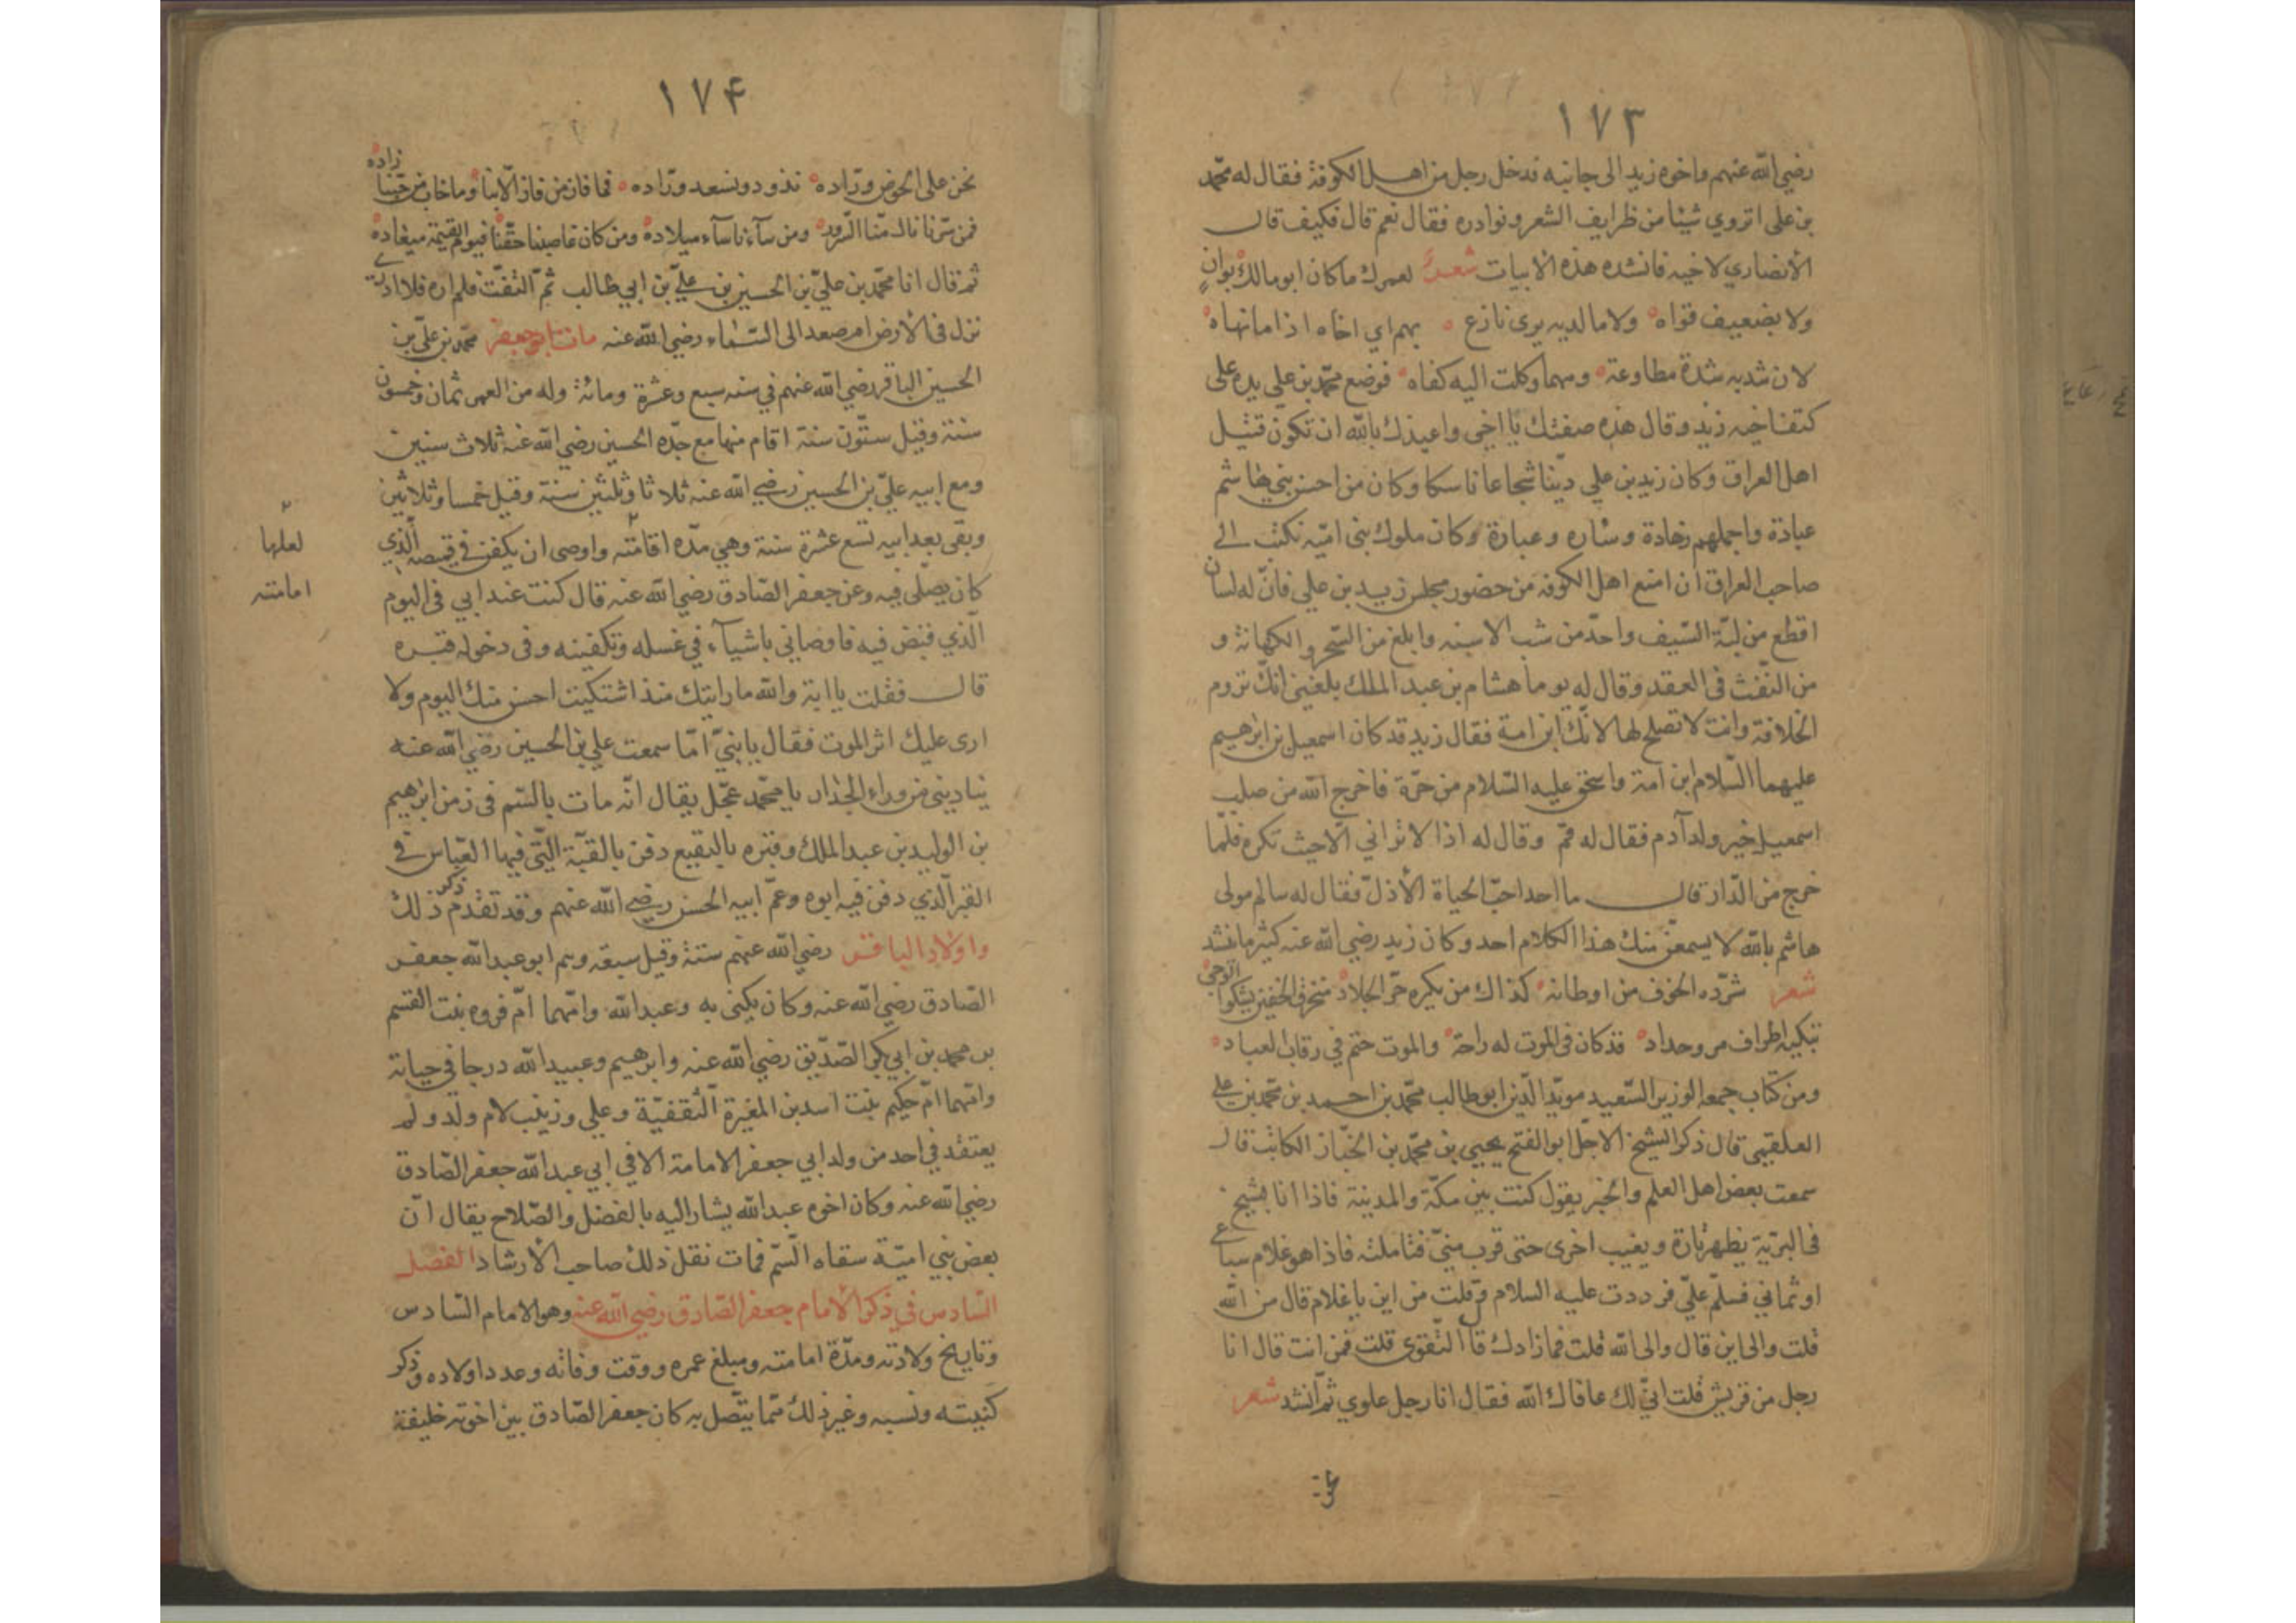 ١٧٣
رضي الله عنهم واخوه زيد الى جانبه فدخل رجل من اهل الكوفة فقال له محمّد
بن على اتروي شيئا من ظرايف الشعر ونوادره فقال نعم قال فكيف قال
الانصاري لاخيه فانشده هذه الابيات شعر لعمرك ما كان ابو مالك بوانٍ
ولا بضعيف قواه ولا مالديه يرى نازع بهم اي اخاه اذا ما نهاه
لان شدبه شدة مطاوعة ومهما وكلت اليه كفاه فوضع محمّد بن علي يده على
كتف اخيه زيد وقال هذه صفتك يا اخي واعيذك بالله ان تكون قتيل
اهل العراق وكان زيد بن علي ديّنا شجاعا ناسكا وكان من احسن بني هاشم
عبادة واجملهم رفادة وشاره وعبارة وكان ملوك بنى اميّه تكتب الى
صاحب العراق ان امنع اهل الكوفه من حضور مجلس زيد بن علي فانّ له لسان
اقطع من لبّة السّيف واحدّ من شب الاسنه وابلغ من السّحر والكهانة و
من النّفث فى العقد وقال له يوما هشام بن عبد الملك بلغنى انّك تروم
الخلافة وانت لا تصلح لها لانّك ابن امة فقال زيد قد كان اسمعيل بن ابراهيم
عليهما السّلام ابن امة واسحق عليه السّلام من حرّة فاخرج الله من صلب
اسمعيل خير ولد آدم فقال له قم وقال له اذا لا ترانى الّا حيث تكره فلمّا
خرج من الدّار قال ما احد احبّ الحياة الّا ذلّ فقال له سالم مولى
هاشم بالله لا يسمعنّ منك هذا الكلام احد وكان زيد رضي الله عنه كثير ما ينشد
شعر شرّده الخوف من اوطانه كذاك من يكره حرّ الجلاد منخرق الخفين يشكوا الوجى
تبكيه اطراف مرو حداد قد كان فى الموت له راحة والموت حتم في رقاب العباد
ومن كتاب جمعه الوزير السّعيد مويّد الدّين ابو طالب محمّد بن احمد بن محمّد بن علي
العلقيمى قال ذكر الشيخ الاجلّ ابو الفتح يحيى بن محمّد بن الخبّاز الكاتب قال
سمعت بعض اهل العلم والخبر يقول كنت بين مكّة والمدينة فاذا انا بشيخ
فى البرّيّة يظهر تارة ويغيب اخرى حتى قرب منيّ فتاملته فاذا هو غلام سباعي
او ثماني فسلّم عليّ فرددت عليه السلام وقلت من اين يا غلام قال من الله
قلت والى اين قال والى الله قلت فما زادك قال التّقوى قلت فمن انت قال انا
رجل من قريش قلت ابنّ لك عافاك الله فقال انا رجل علوي ثمّ انشد شعر
نحن
١٧٤
نحن على الحوض ورّاده نذود ونسعد ورّاده فما فاز من فاز الّا بنا وما خاب من حبّنا زاده
فمن سّرنا نال منّا السّرور ومن سآءنا سآء ميلاده ومن كان غاصبنا حقّنا فيوم القيمة ميعاده
ثم قال انا محمّد بن عليّ بن الحسين بن عليّ بن ابي طالب ثمّ التفتّ فلم اره فلا ادرى
نزل فى الارض ام صعد الى السّماء رضي الله عنه مات ابو جعفر محمّد بن عليّ بن
الحسين الباقر رضي الله عنهم في سنه سبع وعشرة ومائة وله من العمر ثمان وخمسون
سنة وقيل ستّون سنة اقام منها مع جدّه الحسين رضي الله عنه ثلاث سنين
ومع ابيه عليّ بن الحسين رضي الله عنه ثلاثا وثلثين سنة وقيل خمسا وثلاثين
وبقى بعد ابيه تسع عشرة سنة وهي مدّه اقامته واوصى ان يكفن في قميصه الّذي
لعلها
امامته
كان يصلّى فيه وعن جعفر الصّادق رضي الله عنه قال كنت عند ابي فى اليوم
الّذي قبض فيه فاوصاني باشيآء في غسله وتكفينه وفى دخوله قبره
قال فقلت يا ابة والله ما رايتك منذ اشتكيت احسن منك اليوم ولا
ارى عليك اثر الموت فقال يا بنيّ امّا سمعت علي بن الحسين رضي الله عنه
يناديني من وراء الجدار يا محمّد عجّل يقال انّه مات بالسّم فى زمن ابرهيم
بن الوليد بن عبد الملك وقبره بالبقيع دفن بالقبّة الّتى فيها العبّاس في
القبر الّذي دفن فيه ابوه وعمّ ابيه الحسن رضي الله عنهم وقد تقدم ذكر ذلك
واولاد الباقر رضي الله عنهم ستة وقيل سبعة وهم ابو عبد الله جعفر
الصّادق رضي الله عنه وكان يكنى به وعبد الله وامّهما امّ فروه بنت القسم
بن محمد بن ابي بكر الصّدّيق رضي الله عنه وابرهيم وعبيد الله درجا في حياته
وامّهما امّ حكيم بنت اسد بن المغيرة الثقفيّة وعلي وزينب لام ولد ولم
يعتقد في احد من ولد ابي جعفر الامامة الا في ابي عبد الله جعفر الصّادق
رضي الله عنه وكان اخوه عبد الله يشار اليه بالفضل والصّلاح يقال انّ
بعض بني اميّة سقاه السّم فمات نقل ذلك صاحب الارشاد الفصل
السّادس في ذكر الامام جعفر الصّادق رضي الله عنه وهو الامام السّادس
وتاريخ ولادته ومدّة امامته ومبلغ عمره ووقت وفاته وعدد اولاده وذكر
كنيته ونسبه وغير ذلك ممّا يتّصل به كان جعفر الصّادق بين اخوته خليفة